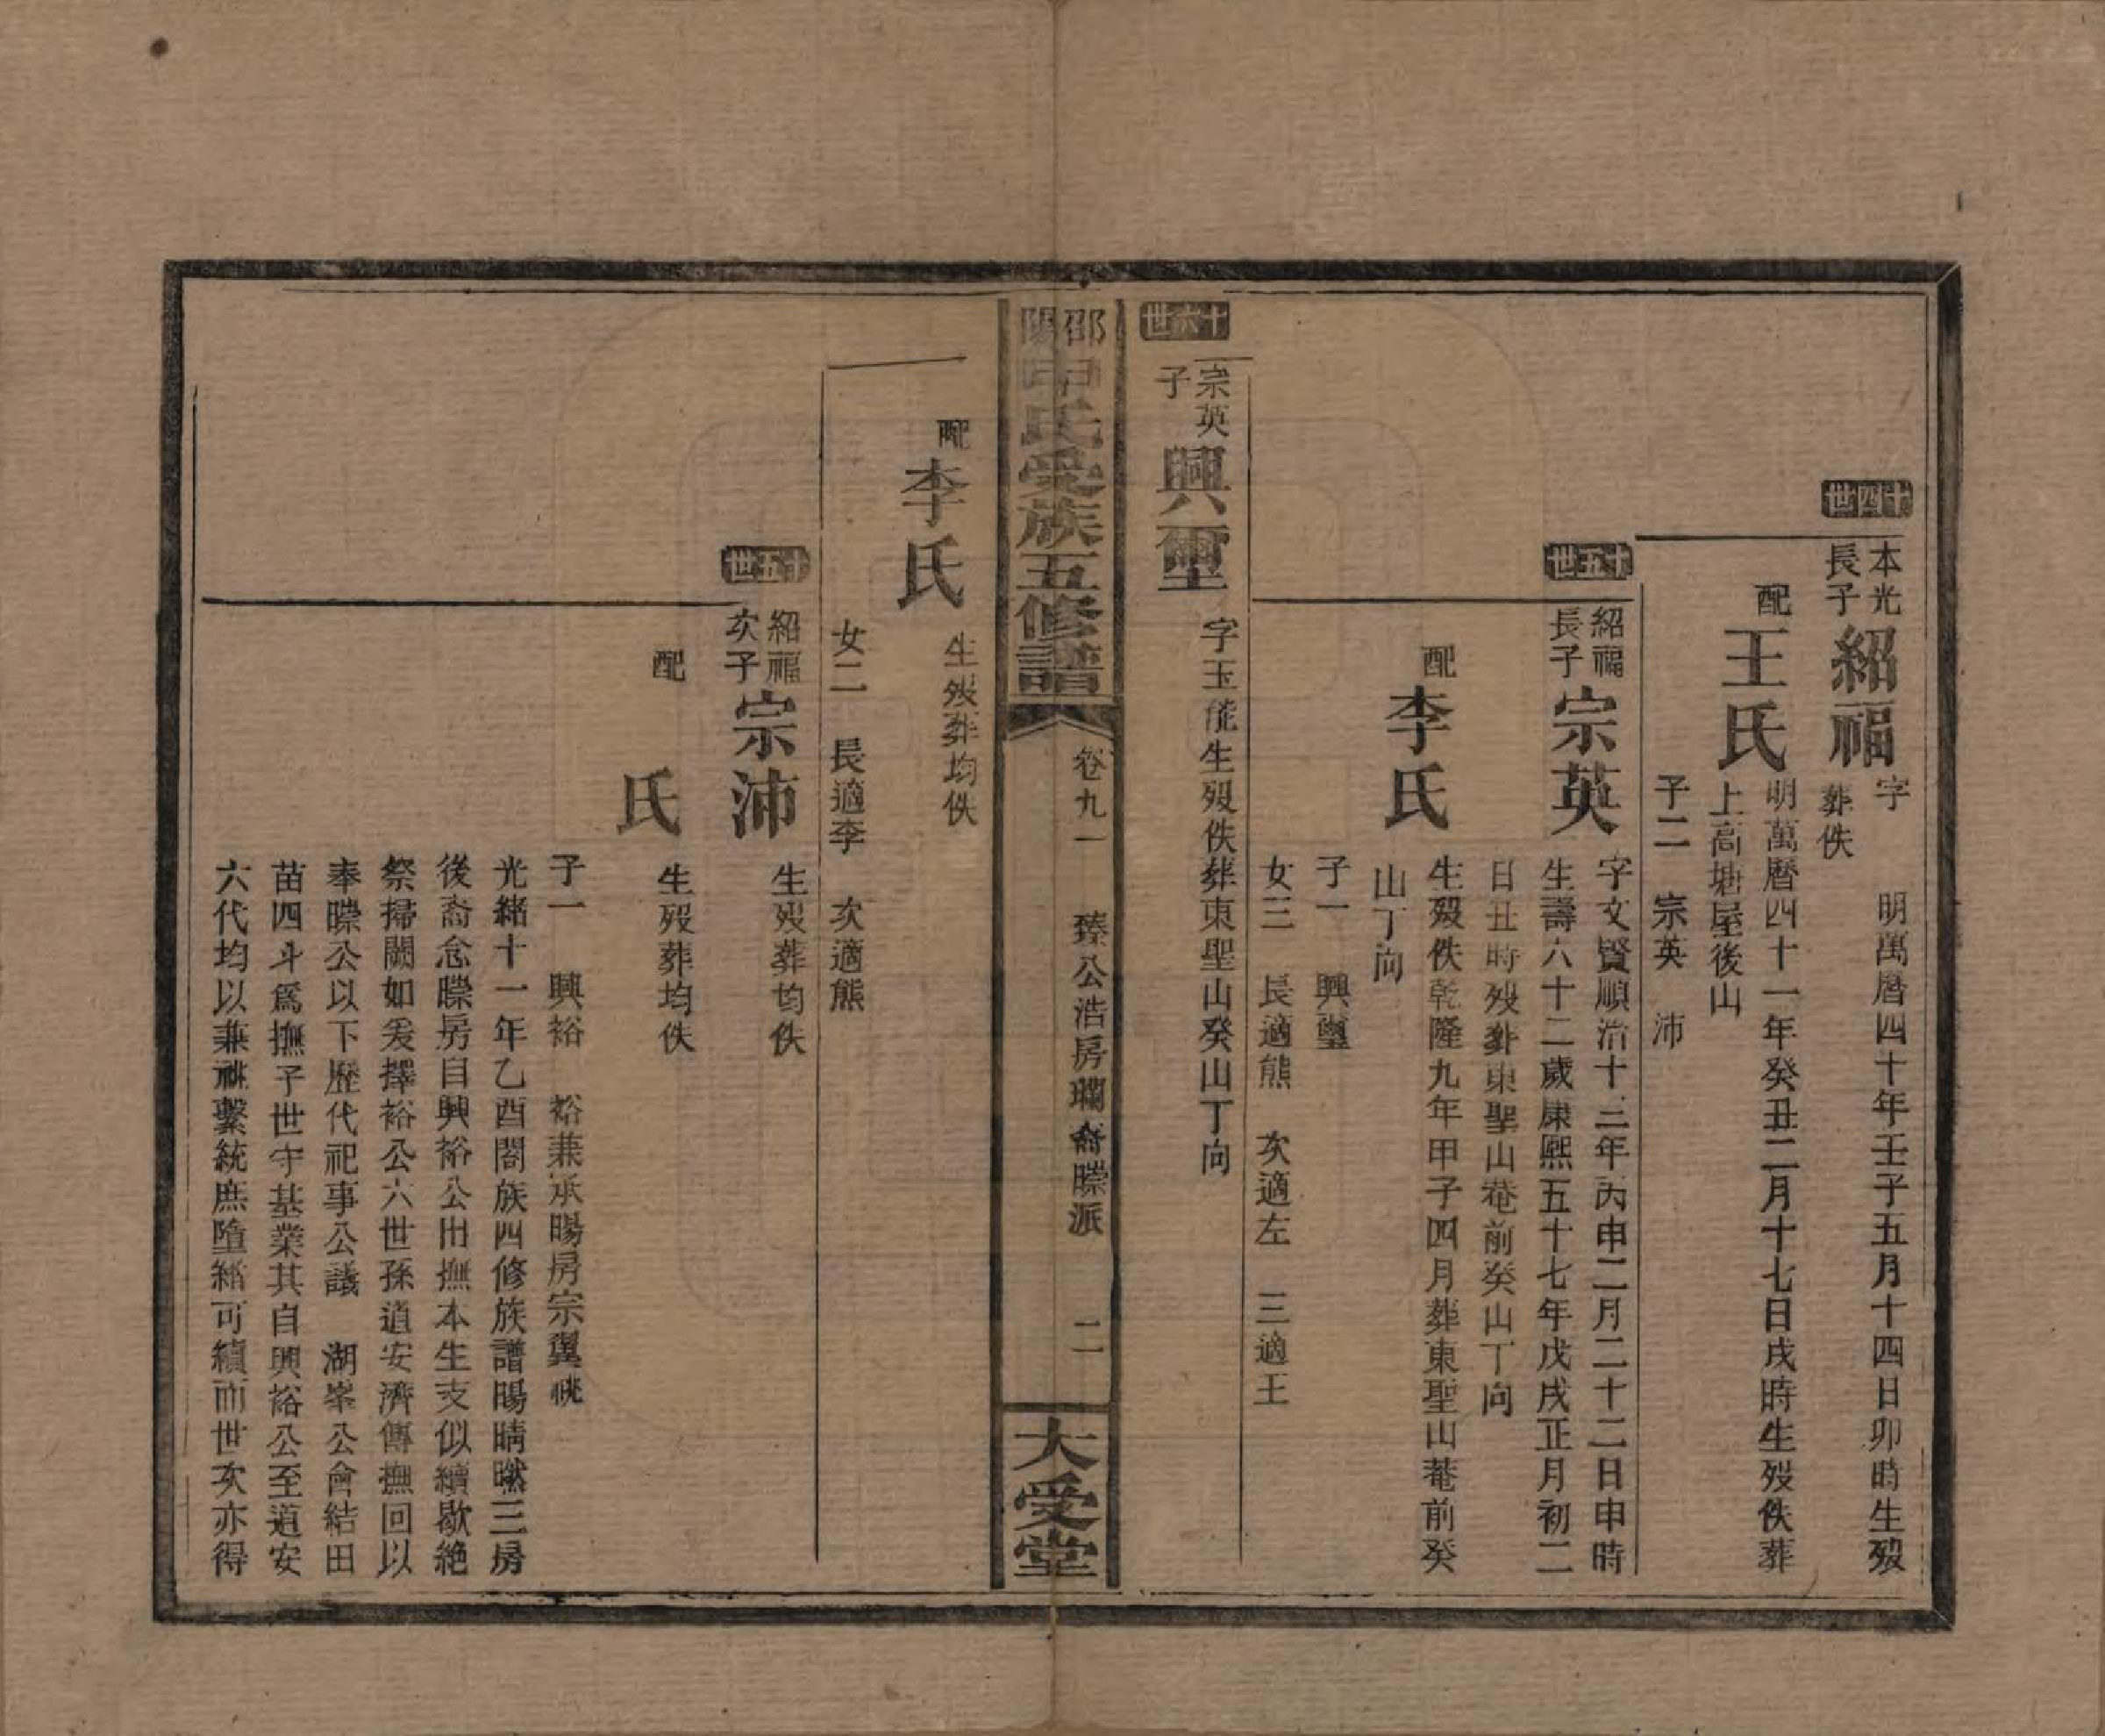 十四世
本光
長子
紹福
字 明萬曆四十年壬子五月十四日卯時生歿
葬佚
配
王氏
明萬曆四十一年癸丑二月十七日戌時生歿佚葬
上高塘屋後山
子二 宗英 沛
十五世
紹福
長子
宗英
字文賢順治十三年丙申二月二十二日申時
生壽六十二歲康熙五十七年戊戌正月初二
日丑時歿葬東聖山菴前癸山丁向
配
李氏
生歿佚乾隆九年甲子四月葬東聖山菴前癸
山丁向
子一 興璽
女三 長適熊 次適左 三適王
十六世
宗英
子
興璽
字玉能生歿佚葬東聖山癸山丁向
邵陽申氏受族五修譜
卷九一 臻公浩房瓓裔㬥派 二
大受堂
配
李氏
生歿葬均佚
女二 長適李 次適熊
十五世
紹福
次子
宗沛
生歿葬均佚
配
氏
生歿葬均佚
子一 興裕 裕兼承暘房宗翼祧
光緒十一年乙酉閤族四修族譜暘晴㬗三房
後裔念㬥房自興裕公出撫本生支似續歇絶
祭掃闕如爰擇裕公六世孫道安濟傳撫回以
奉㬥公以下歷代祀事公議 湖峯公會結田
苗四斗爲撫子世守基業其自興裕公至道安
六代均以兼祧繫統庶墮緒可續而世次亦得